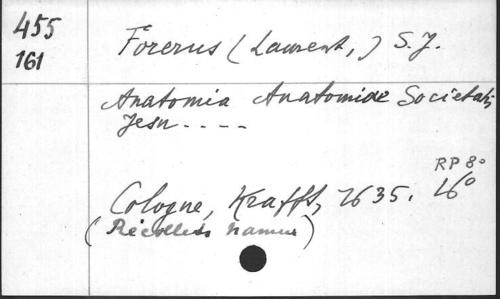 455
161
Forerus (Laurent,) S.J.
Anatomia Anatomiae Societatis
Jesu ----
RP 8°
Cologne, Krafft, 1635. 16°
(Récollets Namur)